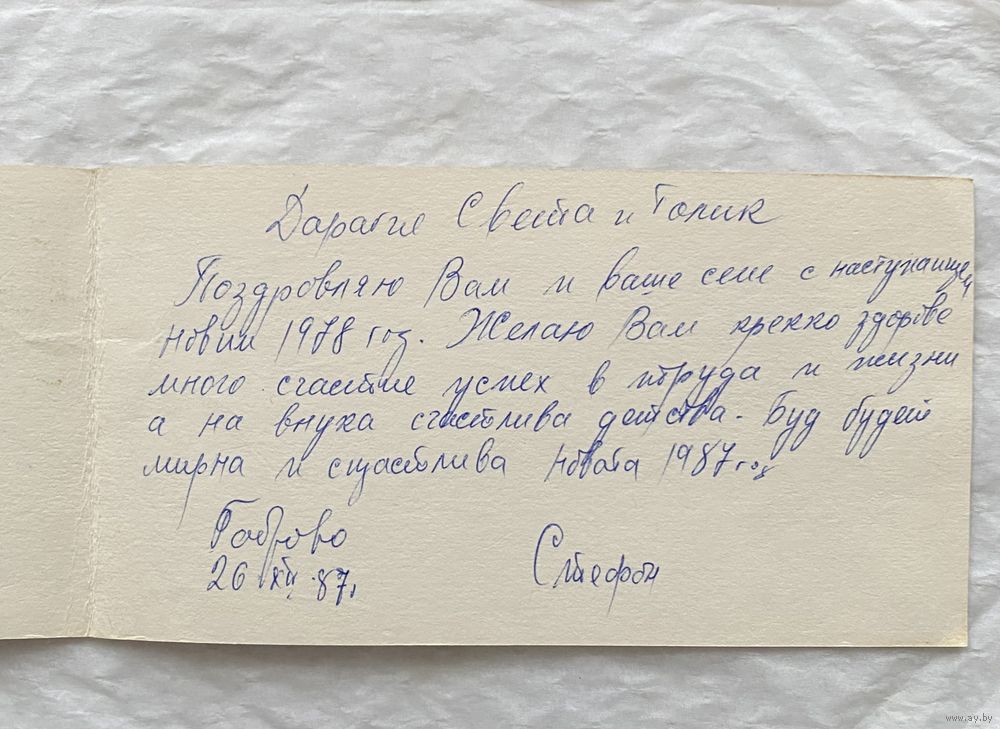 Дарагие Света и Толик
Поздровляю Вам и ваше семе с наступаищем
новим 1988 год. Желаю Вам крекко здорове
много счастие успех в труда и жизни
а на внука счастлива детства. Буд будет
мирна и счастлива новата 1987 год
Габрово
26 XII. 87г. Стефан
www.ay.by